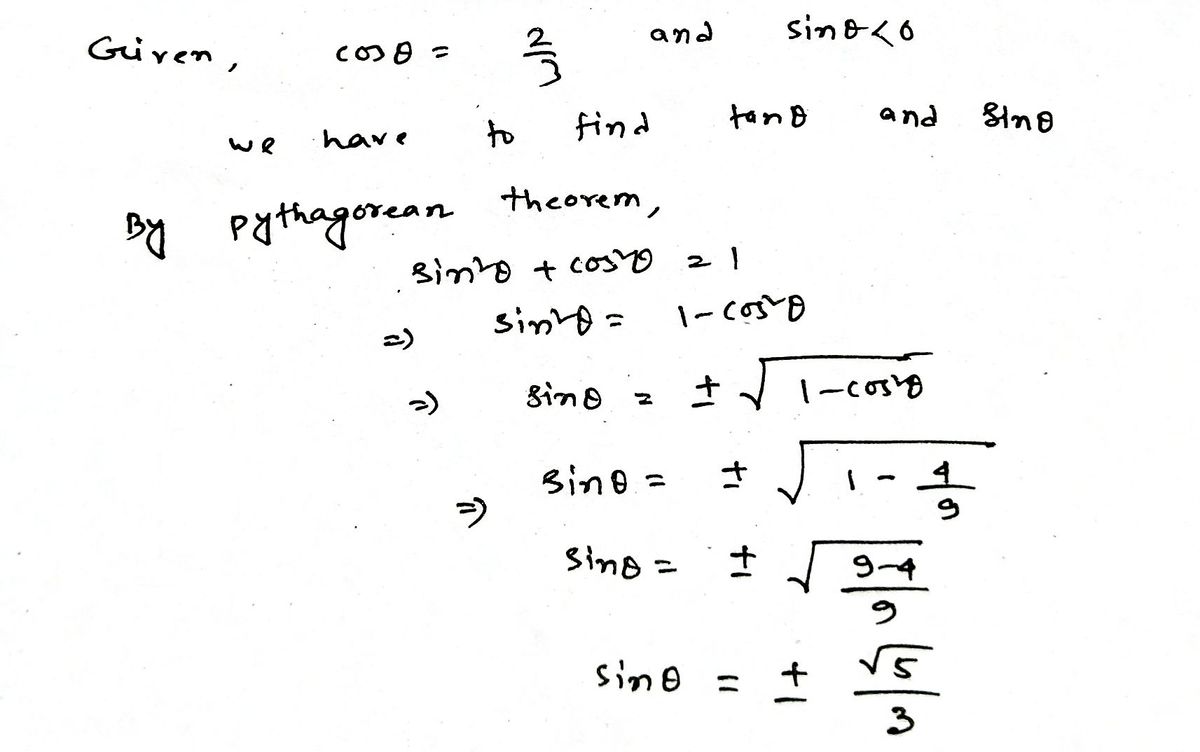 Given, cosθ = 2/3 and sinθ<0
we have to find tanθ and sinθ
By pythagorean theorem,
sin²θ + cos²θ = 1
=) sin²θ = 1-cos²θ
=) sinθ = ± √(1-cos²θ)
=) sinθ = ± √(1 - 4/9)
sinθ = ± √((9-4)/9)
sinθ = ± √5/3